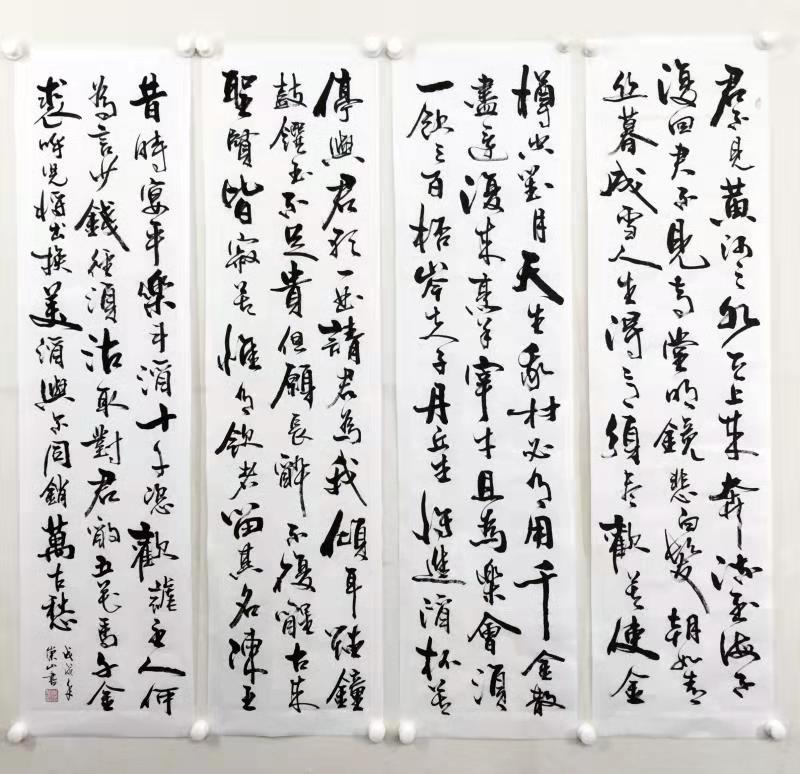 君不見黃河之水天上來奔流至海不
復回君不見高堂明鏡悲白髮朝如青
絲暮成雪人生得意須盡歡莫使金
樽空對月天生我材必有用千金散
盡還復來烹羊宰牛且為樂會須
一飲三百杯岑夫子丹丘生將進酒杯莫
停與君歌一曲請君為我傾耳聽鐘
鼓饌玉不足貴但願長醉不復醒古來
聖賢皆寂寞惟有飲者留其名陳王
昔時宴平樂斗酒十千恣歡謔主人何
為言少錢徑須沽取對君酌五花馬千金
裘呼兒將出換美酒與爾同銷萬古愁
戊戌年
山書